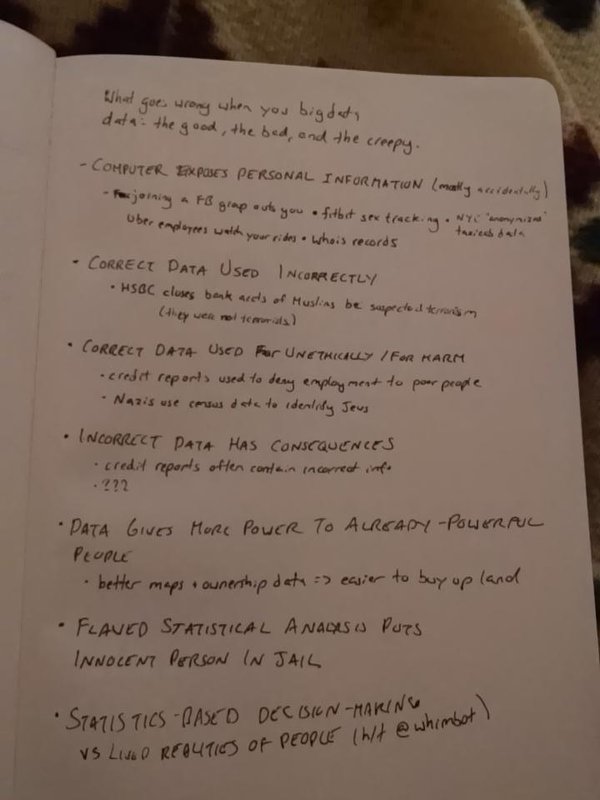 What goes wrong when you big data
data: the good, the bad, and the creepy.
- COMPUTER EXPOSES PERSONAL INFORMATION (mostly accidentally)
- joining a FB group outs you • fitbit sex tracking • NYC "anonymized"
taxicab data
Uber employees watch your rides • whois records
• CORRECT DATA USED INCORRECTLY
• HSBC closes bank accts of Muslims bc suspected terrorism
(they were not terrorists)
• CORRECT DATA USED UNETHICALLY / FOR HARM
• credit reports used to deny employment to poor people
• Nazis use census data to identify Jews
• INCORRECT DATA HAS CONSEQUENCES
• credit reports often contain incorrect info
• ???
• DATA GIVES MORE POWER TO ALREADY-POWERFUL
PEOPLE
• better maps + ownership data => easier to buy up land
• FLAWED STATISTICAL ANALYSIS PUTS
INNOCENT PERSON IN JAIL
• STATISTICS-BASED DECISION-MAKING
VS LIVED REALITIES OF PEOPLE (h/t @whimbot)